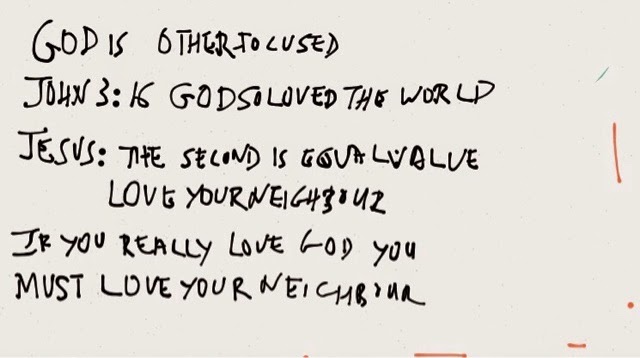 GOD IS OTHER FOCUSED
JOHN 3:16 GOD SO LOVED THE WORLD
JESUS: THE SECOND IS EQUAL VALUE
LOVE YOUR NEIGHBOUR
IF YOU REALLY LOVE GOD YOU
MUST LOVE YOUR NEIGHBOUR